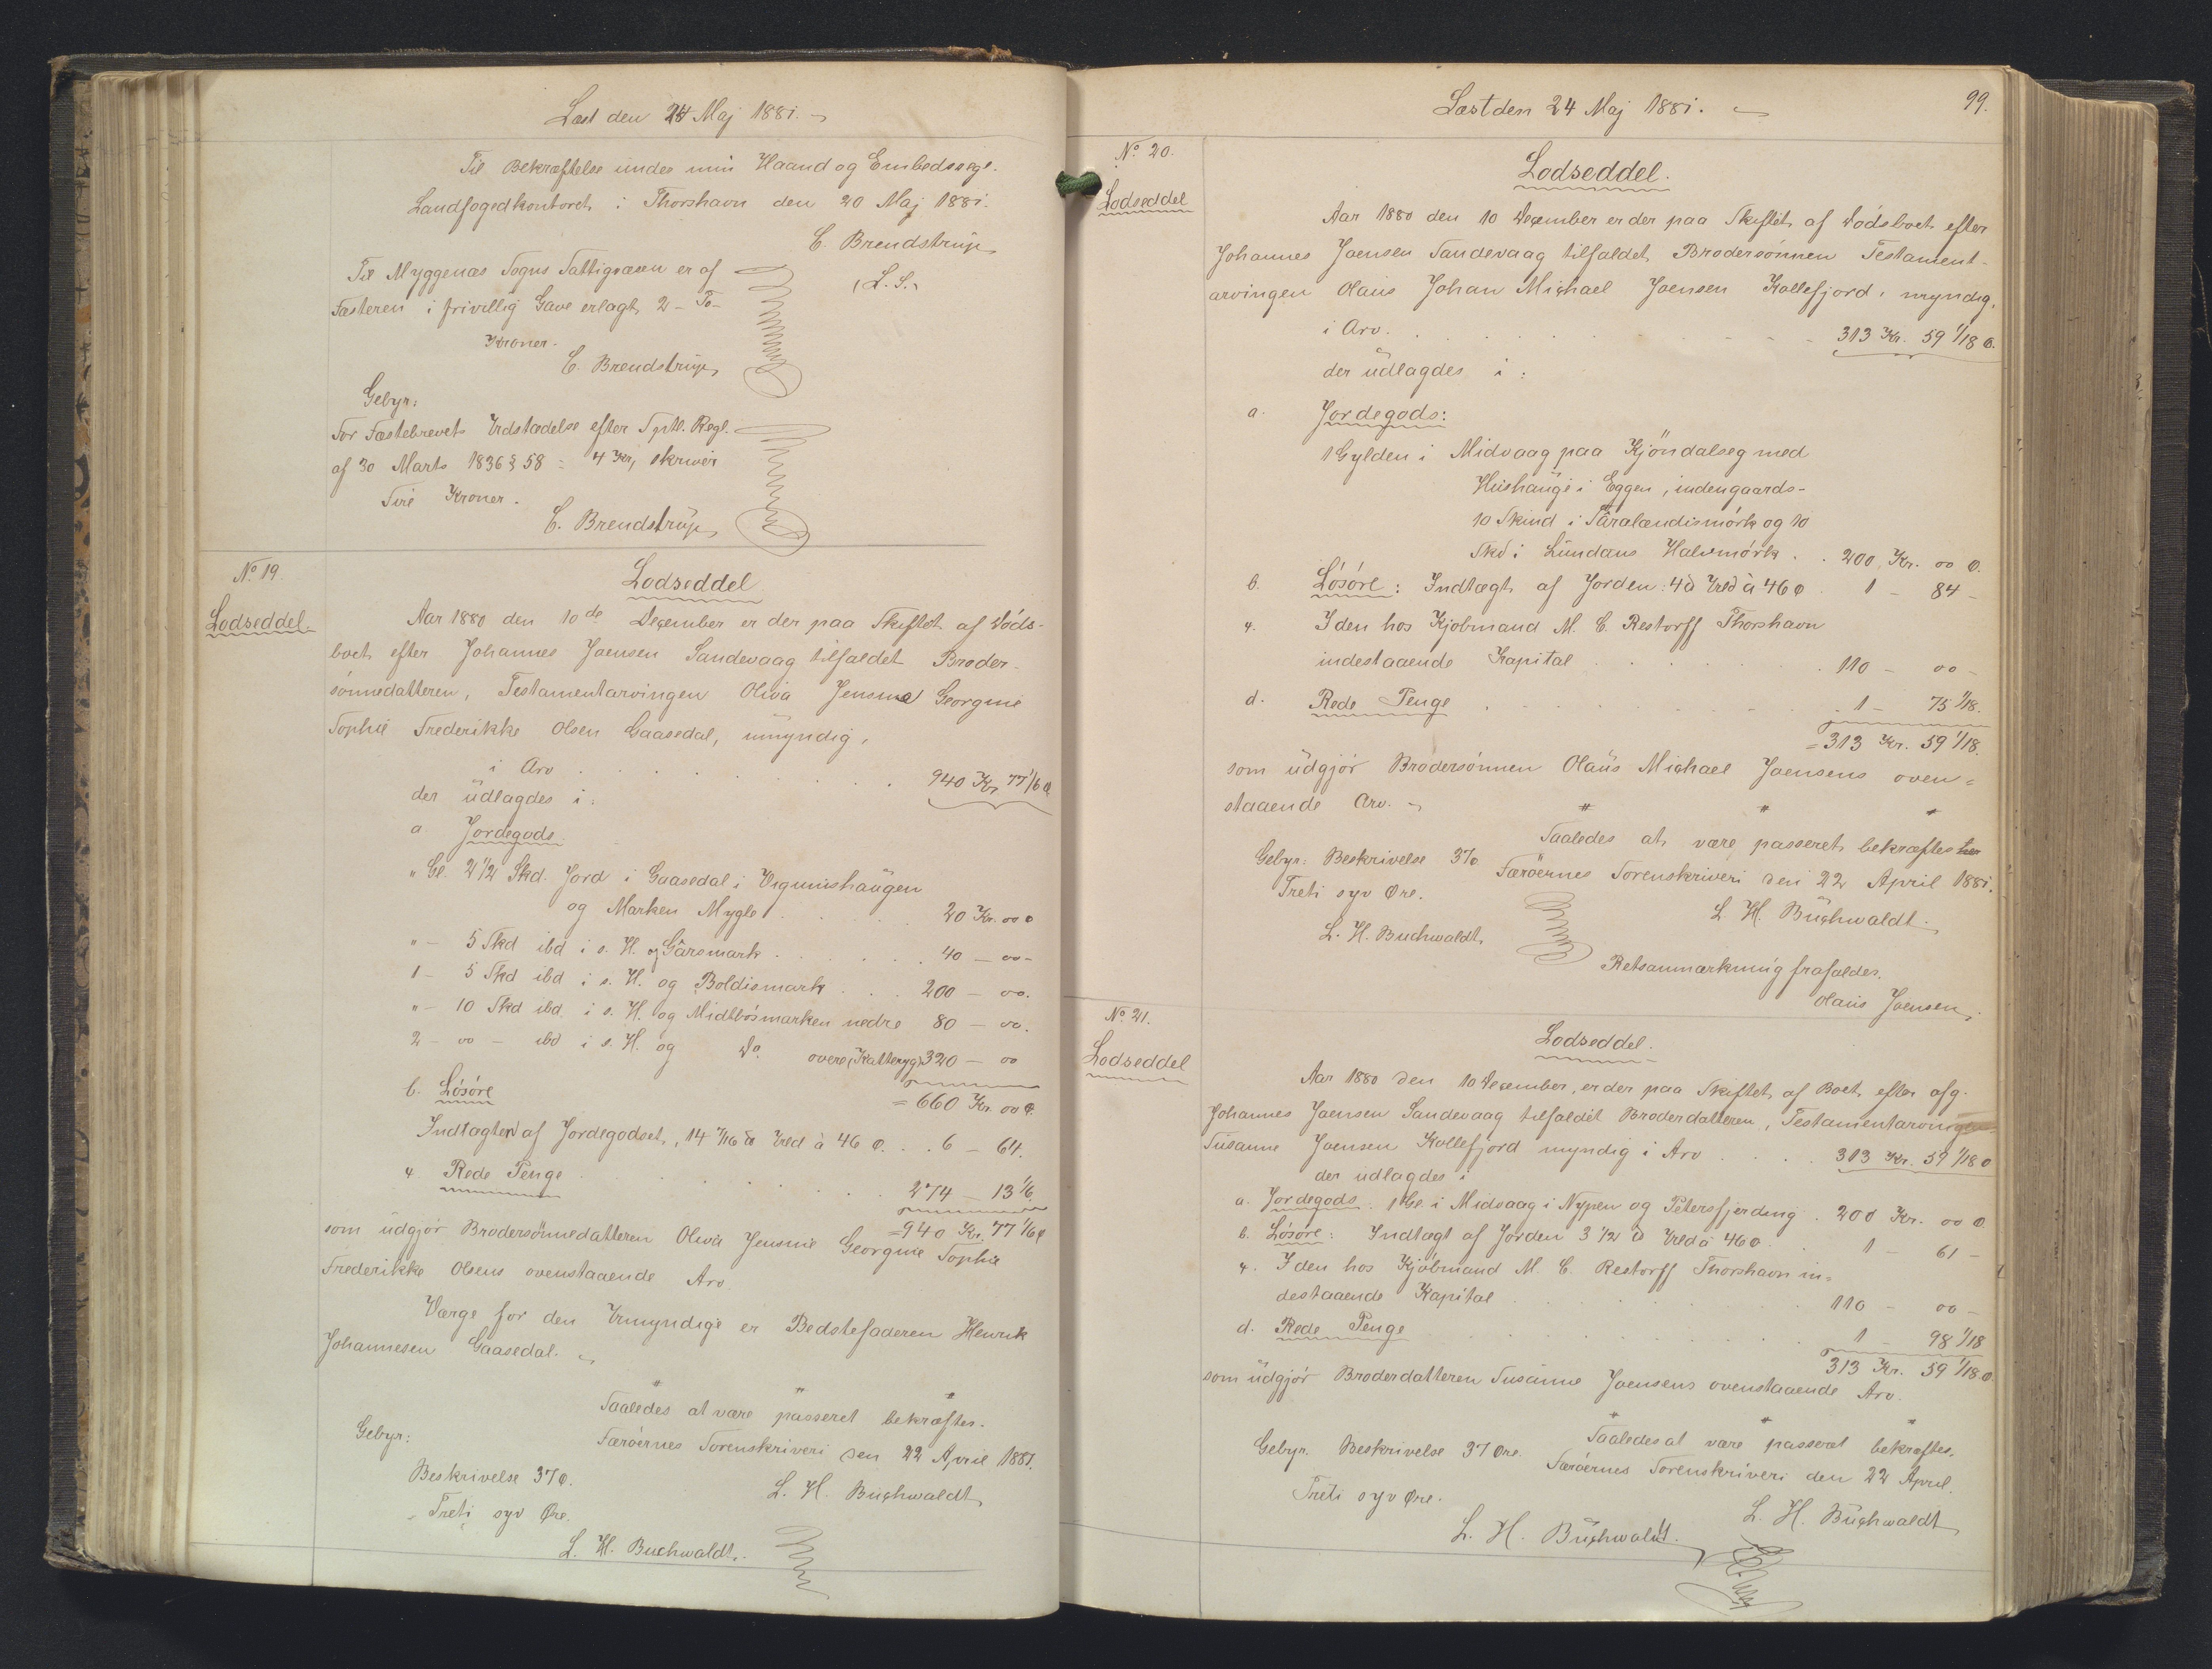 Læst den 24 Maj 1881.
Til Bekræftelse under min Haand og Embedssegl.
Landfogedkontoret i Thorshavn den 20 Maj 1881.
C. Brendstrup
(L. S.)
Til Myggenæs Sogns Fattigvæsen er af
Fæsteren i frivillig Gave erlagt 2 - To -
Kroner.
C. Brendstrup
Gebyr:
For Fæstebrevets Udstædelse efter Sprtl. Regl.
af 30 Marts 1836 § 58 = 4 Kr, skriver
Fire Kroner.
C. Brendstrup
No 19.
Lodseddel.
Lodseddel
Aar 1880 den 10de December er der paa Skiftet af Döds-
boet efter Johannes Joensen Sandevaag tilfaldet Broder-
sönnedatteren, Testamentarvingen Oliva Jensine Georgine
Sophie Frederikke Olsen Gaasedal, umyndig,
i Arv . . . 940 Kr 77 1/6 Ø.
der udlagdes i:
a. Jordegods.
" Gl. 2 1/2 Skd. Jord i Gaasedal i Uigunishaugen
og Marken Mygle . . . 20 Kr. 00 Ø
" - 5 Skd ibd i s. H. og Gärsmark . . . 40 - 00 -
1 - 5 Skd ibd i s. H. og Boldismark . . . 200 - 00.
" - 10 Skd ibd i s. H. og Midtbösmarken nedre 80 - 00.
2 - 00 - ibd i s. H. og Do. övere (Katteryg) 320 - 00
= 660 Kr. 00 Ø.
b. Lösöre
Indtægten af Jordegodset, 14 7/16 ℔ Uld à 46 Ø. . . 6 - 64.
c. Rede Penge . . . 274 - 13 1/6.
= 940 Kr. 77 1/6 Ø
som udgjör Brodersönnedatteren Oliva Jensine Georgine Sophie
Frederikke Olsens ovenstaaende Arv
Værge for den Umyndige er Bedstefaderen Henrik
Johannesen Gaasedal.
Saaledes at være passeret bekræftes.
Færöernes Sorenskriveri den 22 April 1881.
L. H. Buchwaldt
Gebyr:
Beskrivelse 37 Ø.
Treti syv Øre.
L. H. Buchwaldt.
Læst den 24 Maj 1881.
99.
No 20.
Lodseddel
Lodseddel.
Aar 1880 den 10 December er der paa Skiftet af Dödsboet efter
Johannes Joensen Sandevaag tilfaldet Brodersönnen Testament-
arvingen Olaus Johan Michael Joensen Kollefjord, myndig,
i Arv. . . . 313 Kr. 59 1/18 Ø.
der udlagdes i:
a. Jordegods:
1 Gylden i Midvaag paa Kjöndalseg med
Hushauge i Eggen, indengaards-
10 Skind i Säralændismörk og 10
Skd i Lundans Halvmörk . . 200 Kr. 00 Ø.
b. Lösöre: Indtægt af Jorden: 4 ℔ Uld à 46 Ø 1 - 84 -
c. I den hos Kjöbmand M. C. Restorff Thorshavn
indestaaende Kapital . . . 110 - 00 -
d. Rede Penge . . . 1 - 75 1/18.
= 313 Kr. 59 1/18.
som udgjör Brodersönnen Olaus Michael Joensens oven=
staaende Arv.
Saaledes at være passeret bekræftes her
Færöernes Sorenskriveri den 22 April 1881.
L. H. Buchwaldt.
Gebyr: Beskrivelse 37 Ø
Treti syv Øre.
L. H. Buchwaldt.
Retsanmærkning frafaldes.
Olaus Joensen.
No 21.
Lodseddel
Lodseddel.
Aar 1880 den 10 December, er der paa Skiftet af Boet efter afg.
Johannes Joensen Sandevaag tilfaldet Broderdatteren, Testamentarvingen
Susanne Joensen Kollefjord myndig i Arv . . . 313 Kr. 59 1/18 Ø
der udlagdes i
a. Jordegods: 1 Gl. i Midvaag i Nypen og Petersfjerding . 200 Kr. 00 Ø.
b. Lösöre: Indtægt af Jorden 3 1/2 ℔ Uld à 46 Ø . . 1 - 61 -
c. I den hos Kjöbmand M. C. Restorff Thorshavn in=
destaaende Kapital . . . 110 - 00 -
d. Rede Penge . . . 1 - 98 1/18
313 Kr. 59 1/18 Ø.
som udgjör Broderdatteren Susanne Joensens ovenstaaende Arv.
Saaledes at være passeret bekræftes.
Færöernes Sorenskriveri den 22 April.
L. H. Buchwaldt
Gebyr. Beskrivelse 37 Øre.
Treti syv Øre.
L. H. Buchwaldt.